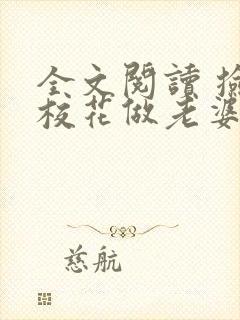 全文閱讀 撿
校花做老婆
慈航